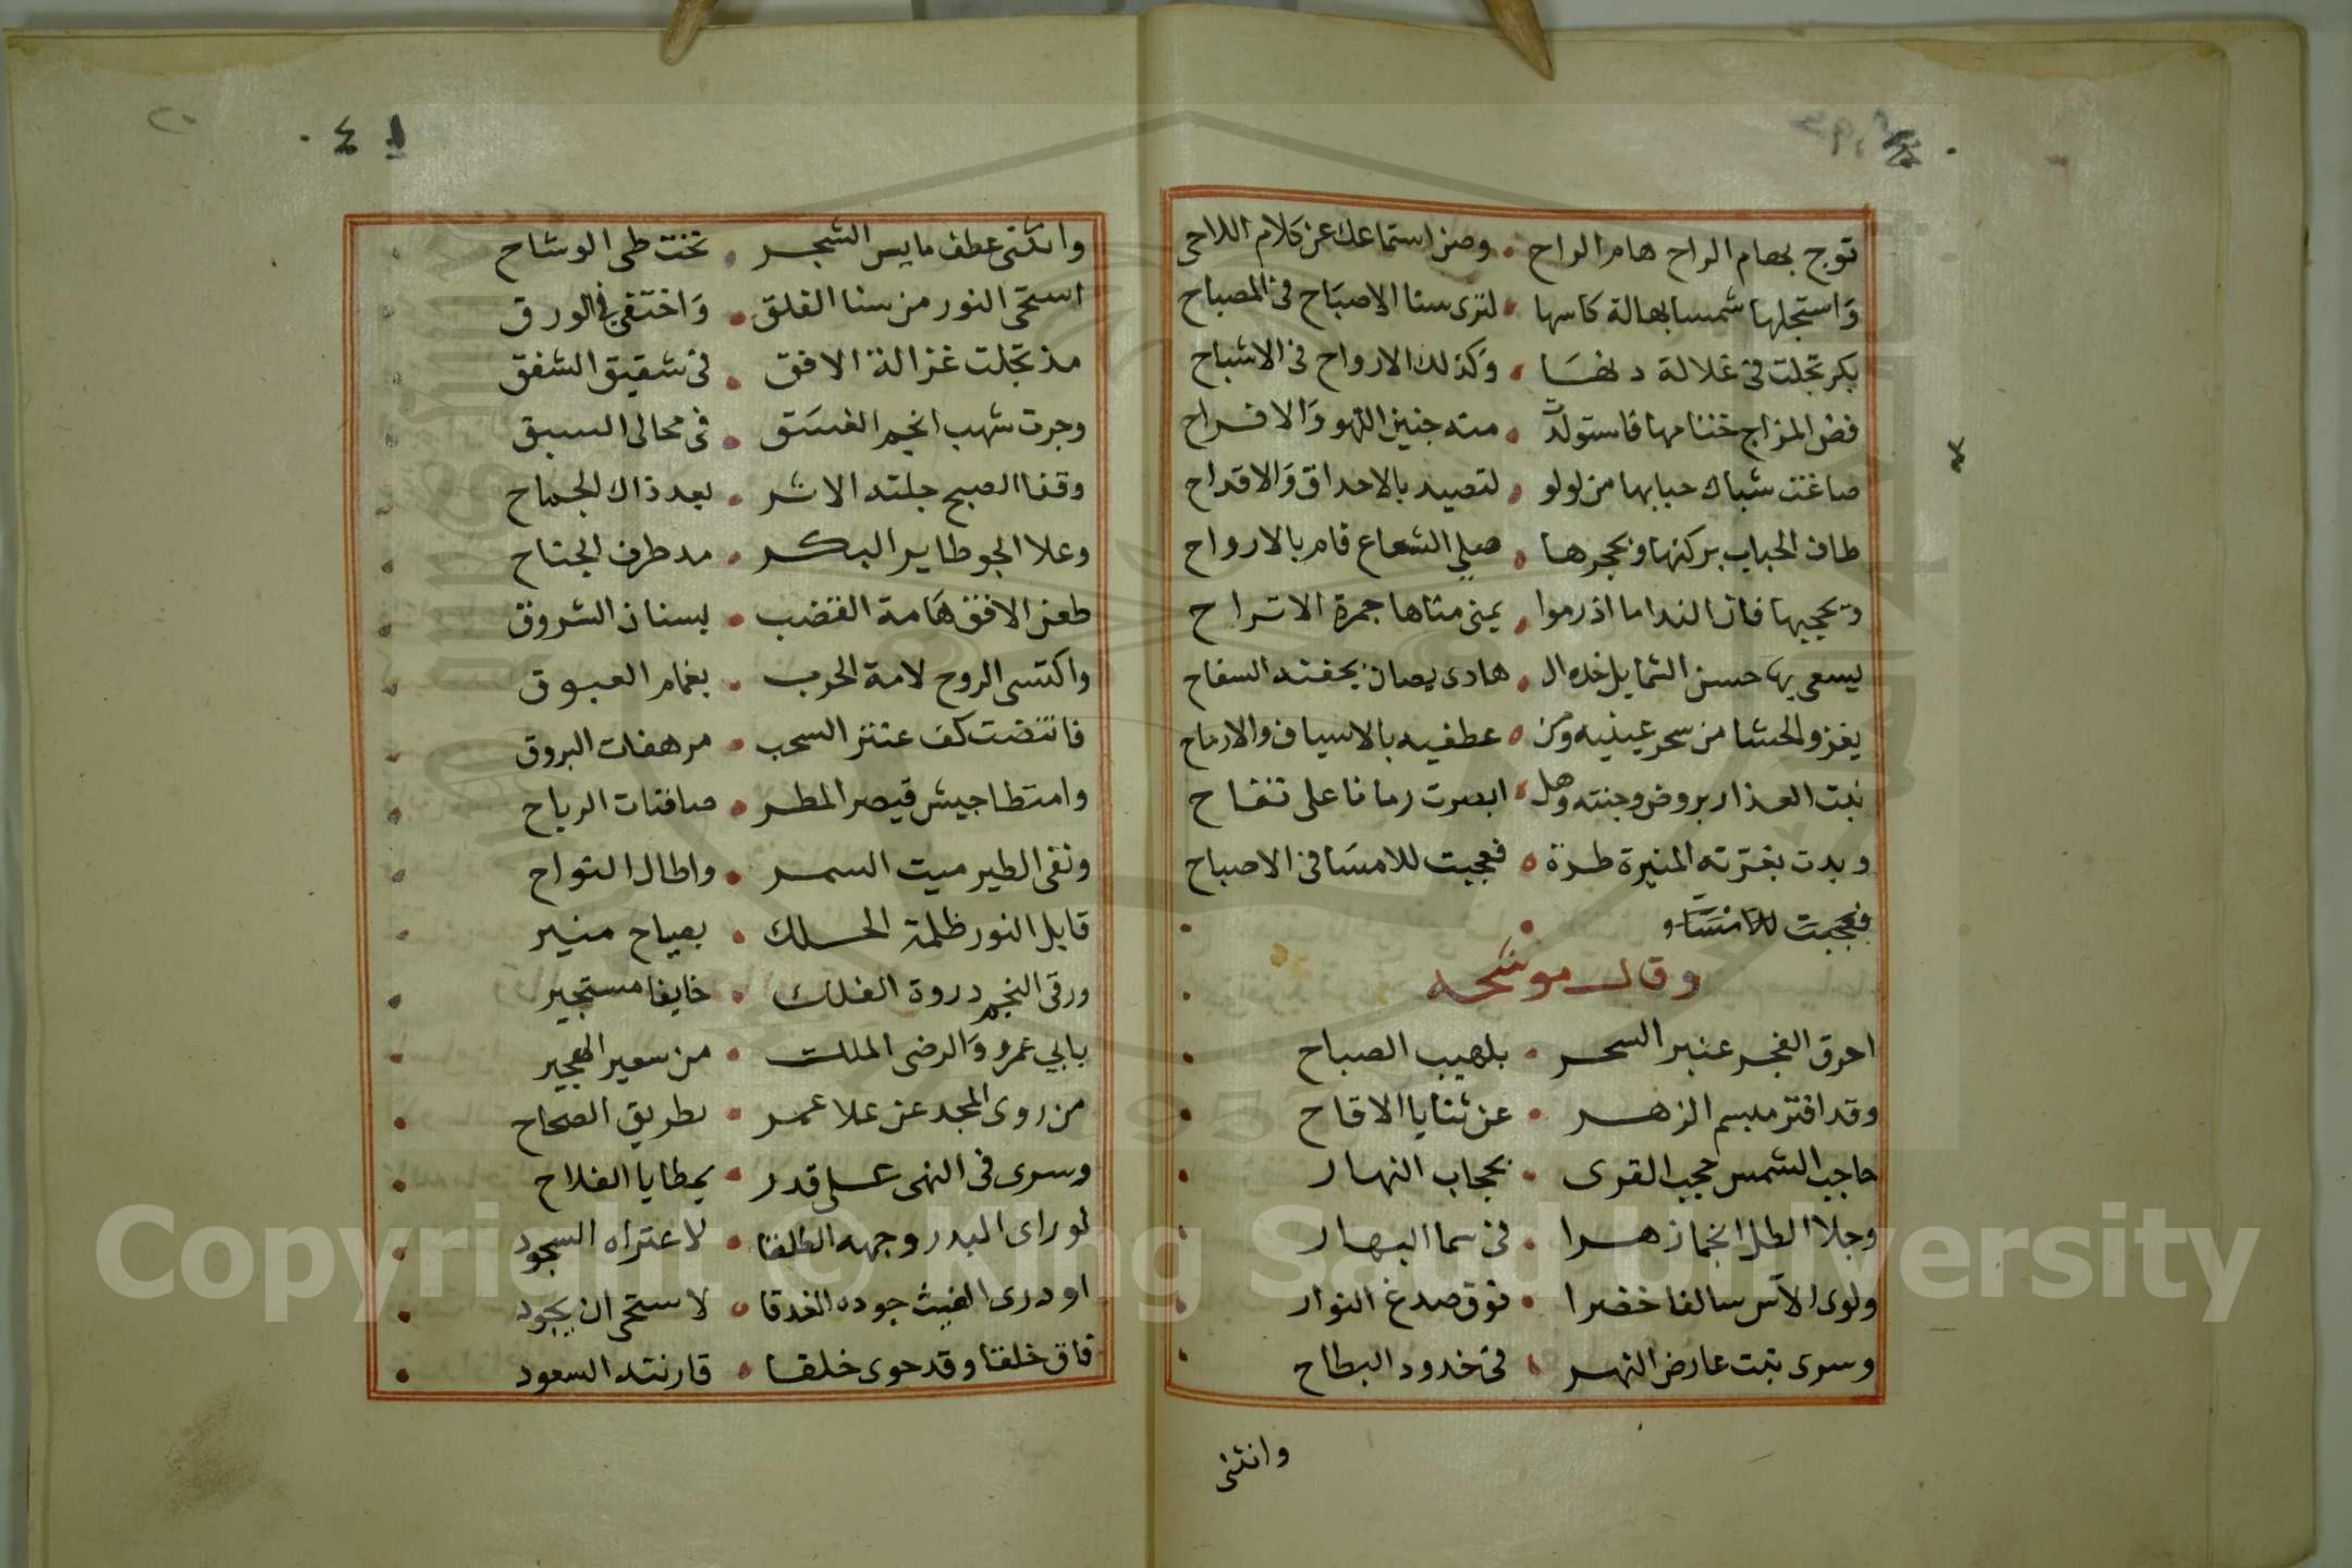 توج بهام الراح هام الراح • وصن استماعك عن كلام اللاحى
وَاستجلها شمسا بهالة كاسها • لترى سنا الاصبَاح فى المصباح
بكر تجلت فى غلالة دنهَا • وَكذلك الارواح فى الاشباح
فض المزاج ختامها فاستولدت • منه جنين اللهو وَالافراح
صاغت شباك حبابها من لولو • لتصيد بالاحداق وَالاقداح
طاف الحباب بركنها وبحجرها • صلى الشعاع قام بالارواح
وبحجيها فاز النداما اذ رموا • يمنى مناها جمرة الاتراح
يسعى بها حسن الشمايل خده ال • هادى يصان بجفنه السفاح
يغزو الحشا من سحر عينيه ومن • عطفيه بالاسياف والارماح
نبت العذار بروض وجنته وهل • ابصرت رمانا على تفاح
وبدت بغرته المنيرة طرة • فعجبت للامسَا فى الاصباح
فعجبت للامسَا و
وقال موشحه
احرق الفجر عنبر السحر • بلهيب الصباح
وقد افتر مبسم الزهر • عن ثنايا الاقاح
حاجب الشمس حجب القرى • بحجاب النهار
وجلا الطل انجما زهرا • فى سما البهار
ولوى الآس سالفا خضرا • فوق صدغ النوار
وسرى نبت عارض النهر • فى خدود البطاح
وانثنى
٤١
وانثنى عطف مايس الشجر • تحت طى الوشاح
استحى النور من سنا الفلق • وَاختفى فى الورق
مذ تجلت غزالة الافق • فى شقيق الشفق
وجرت شهب انجم الغسَق • فى مجالى السبق
وقفا الصبح جلته الاثر • بعد ذاك الجماح
وعلا الجو طاير البكر • مد طرف الجناح
طعن الافق هَامة القضب • بسنان الشروق
واكتسى الروح لامة الحرب • بغمام العبوق
فانتضت كف عنتر السحب • مرهفات البروق
وامتطا جيش قيصر المطر • صافنات الرياح
ونفى الطير ميت السمر • واطال النواح
قابل النور ظلمة الحلك • بصباح منير
ورقى النجم دروة الفلك • خايفا مستجير
بابي عمرو وَالرضى الملك • من سعير الهجير
من روى المجد عن علا عمر • بطريق الصحاح
وسرى فى النهى على قدر • بمطايا الفلاح
لو راى البدر وجهه الطلقا • لاعتراه السجود
او درى الغيث جوده الغدقا • لاستحى ان يجود
فاق خلقا وقد حوى خلقا • قارنته السعود
Copyright © King Saud University